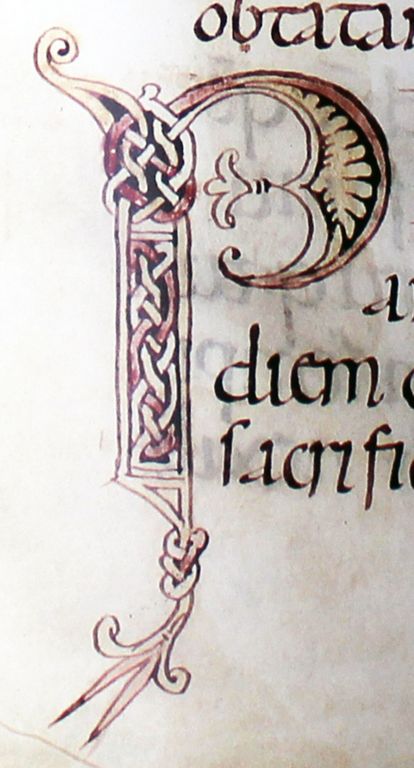 obtata
P
a
diem
sacrifi